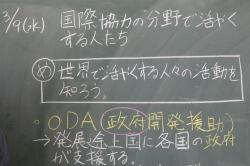 3/9(水) 国際協力の分野で活やく
する人たち
め 世界で活やくする人々の活動を
知ろう。
・ODA(政府開発援助)
→発展途上国に各国の政府
が支援する。